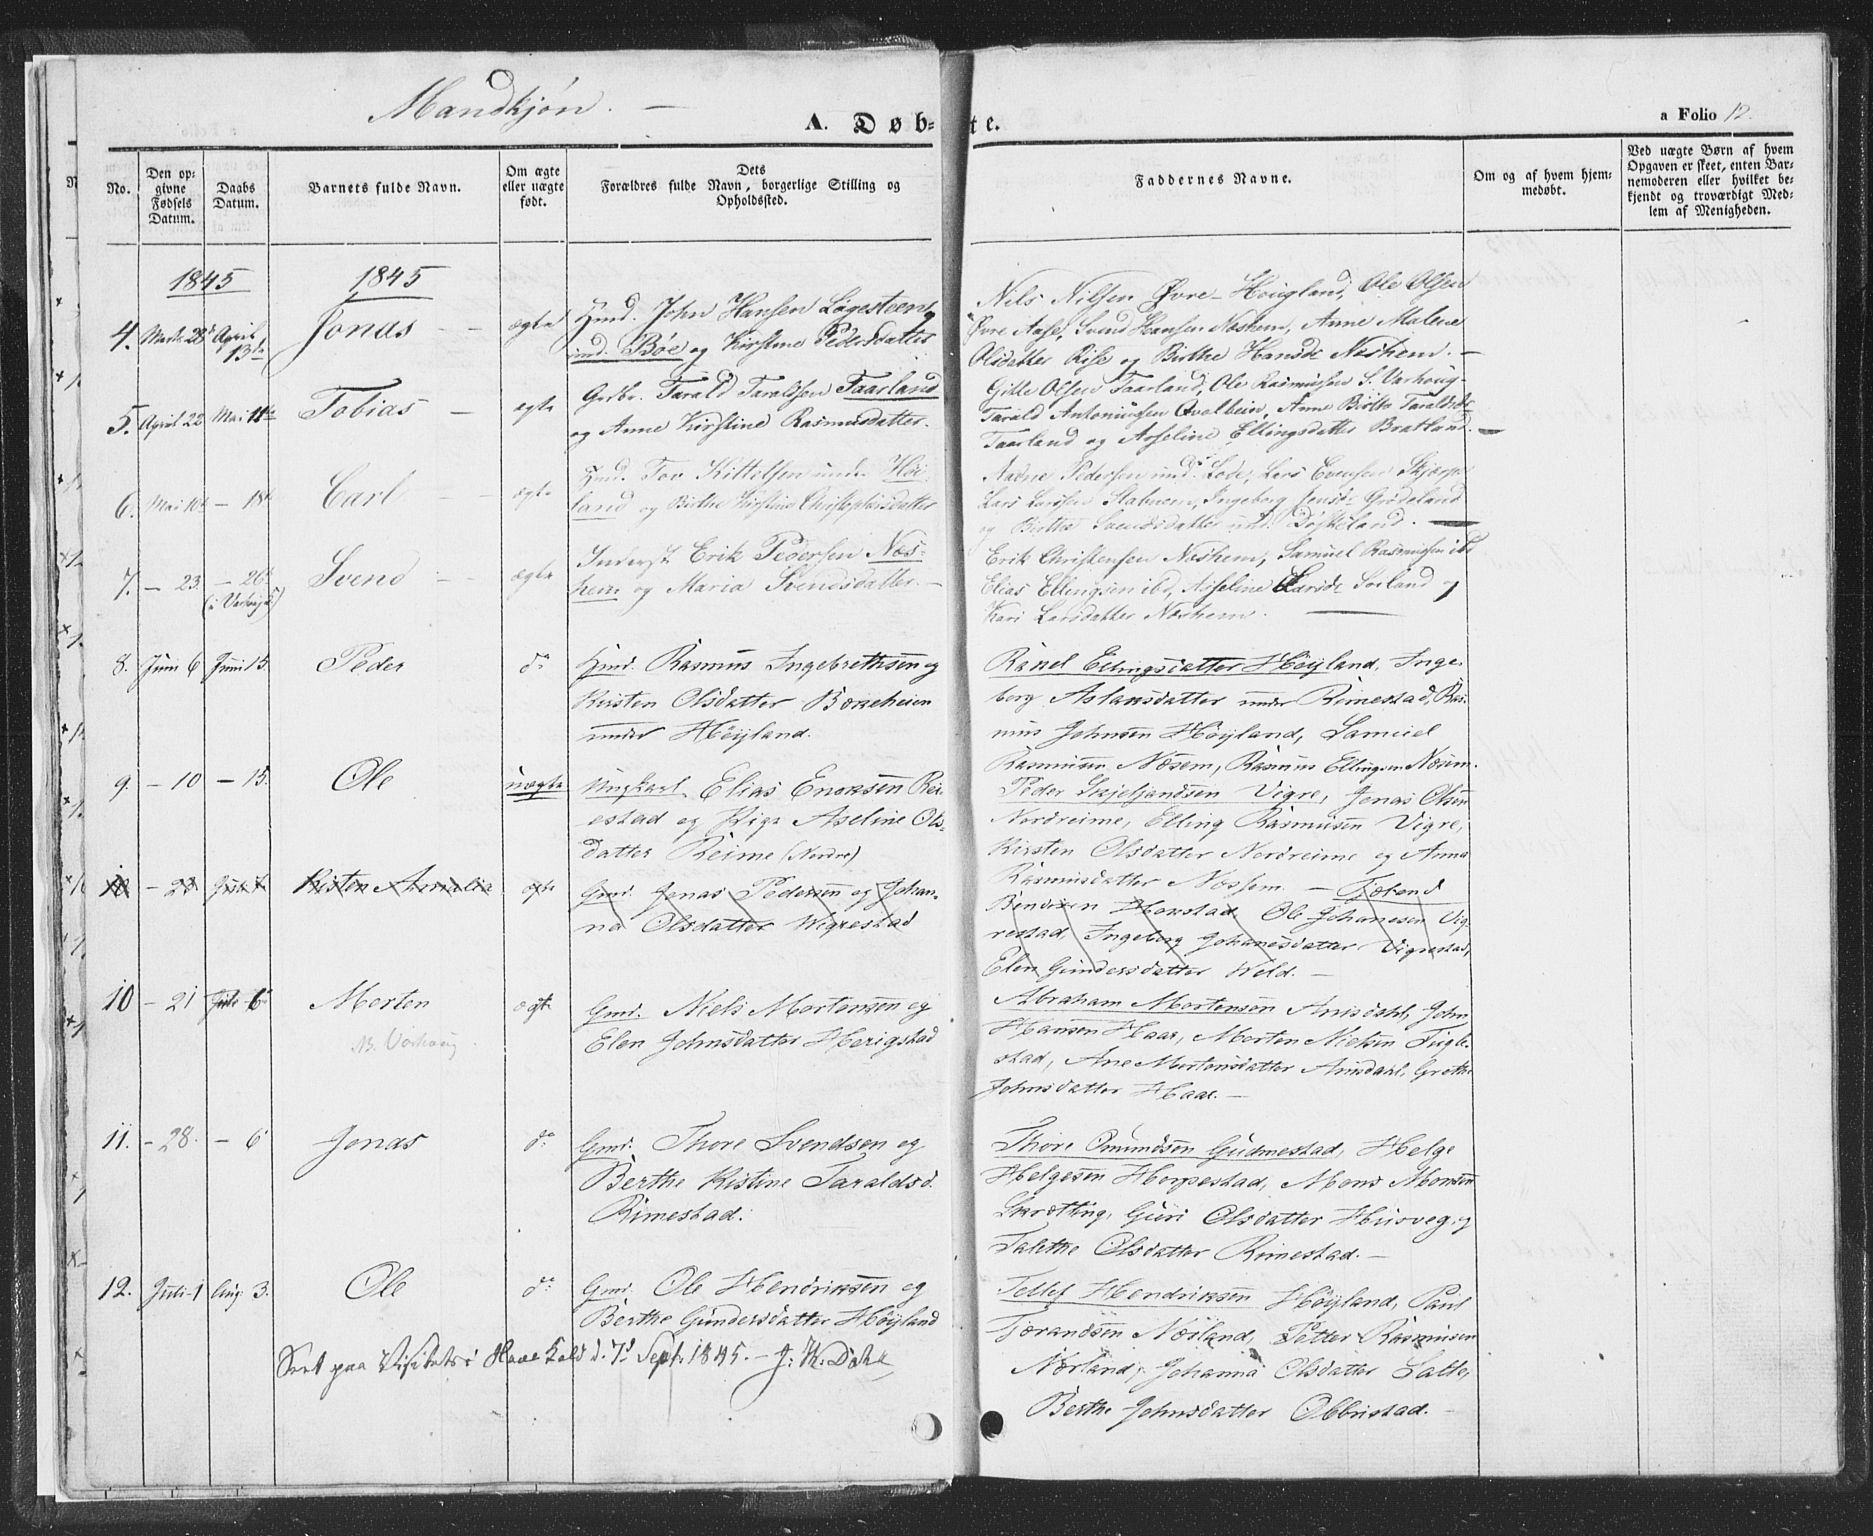 Mandkjön. —
A. Døb- te.
a Folio 12.
No.
Den op-
givne
Fødsels
Datum.
Daabs
Datum.
Barnets fulde Navn.
Om ægte
eller uægte
født.
Dets
Forældres fulde Navn, borgerlige Stilling og
Opholdssted.
Faddernes Navne.
Om og af hvem hjem-
medøbt.
Ved uægte Børn af hvem
Opgaven er skeet, enten Bar-
nemoderen eller hvilket be-
kjendt og troværdigt Med-
lem af Menigheden.
1845 1845
4. Marts 28 April 13de Jonas — ægte
Huusm. John Hansen Løgesteen
und. Bøe og Kirstine Pedersdatter
Nils Nilsen Øvre-Hougland, Ole Olsen
Øvre Aase, Svend Hansen Næshem, Anne Malene
Olsdatter Rise og Birthe Hansd. Neshem. —
5. April 22 Mai 11te Tobias — ægte
Grdbr. Tarald Taraldsen Taarland
og Anne Kirstine Rasmusdatter.
Gitle Olsen Taarland, Ole Rasmussen S. Varhoug
Tarald Antoniussen Qvalbein, Anne Birthe Taraldsdr
Taarland og Asseline Ellingsdatter Bratland. —
6. Mai 10de — 18de Carl — ægte
Huusm. Tov Kittelsen under Høi-
land og Birthe Kirstine Christophersdatter
Aadne Pedersen und. Lode, Lars Evensen Skjærp.
Lars Larssen Stabuem, Ingeborg Jensdr Grødeland
og Birthe Svendsdatter und. Døskeland. —
7. — 23. — 26de (i Varhoug K.) Svend — ægte
Inderst Erik Pedersen Næs-
hem og Maria Svendsdatter. —
Erik Christensen Næshem, Samuel Rasmussen ibd
Elias Ellingsen ibd, Asseline Larsdr Soiland og
Kari Larsdatter Næshem. —
8. Juni 6 Juni 15. Peder do
Huusm. Rasmus Ingebrethsen og
Kirsten Olsdatter Borkeheien
under Höyland.
Ranel Ellingsdatter Höyland, Inge-
berg Aslaksdatter under Rimestad, Ras-
mus Johnsen Höyland, Samuel
Rasmussen Næsem, Rasmus Ellingsen Næsem.
9. — 10 — 15. Ole uægte
Ungkarl Elias Enoksen Rei-
estad og Pige Aseline Ols-
datter Reime (Nordre)
Peder Skjeljandsen Vigre, Jonas Olsen
Nordreime, Elling Rasmusen Vigre,
Kirsten Olsdatter Nordreime og Anna
Rasmusdatter Næssem. —
10 — 23. Juli Kisten Amalia ægte
Gmd. Jonas Pedersen og Johan-
na Olsdatter Wigrestad
Tjerand
Bendixen Horstad. Ole Johanesen Vig-
restad, Ingeborg Johanesdatter Vigrestad,
Elen Gundersdatter Weld. —
10 — 21 Juli 6 Morten ægte
N. Varhoug
Gmd. Niels Mortensen og
Elen Johnsdatter Herigstad
Abraham Mortensen Anisdahl, John
Hansen Haar, Morten Nielsen Fugle-
stad, Ane Mortensdatter Anisdahl, Grethe
Johnsdatter Haar. —
11. — 28. — 6 Jonas do
Gmd. Thore Svendsen og
Berthe Kistine Taraldsd.
Rimestad.
Thore Omundsen Gudmestad, Helge
Helgesen Horpestad, Mons Monsen
Skrötting, Guri Olsdatter Husveg og
Talethe Olsdatter Rimestad. —
12. Juli 1 Aug. 3. Ole do
Gmd. Ole Hendriksen og
Berthe Gundersdatter Höyland
Tellef Hendriksen Höyland, Paul
Tjorandsen Nærland, Petter Rasmusen
Nærland, Johanna Olsdatter Salte,
Berthe Johnsdatter Obbrestad. —
Seet paa Visitats i Haae Kald d. 7de Sept. 1845. — J. K. Dahl